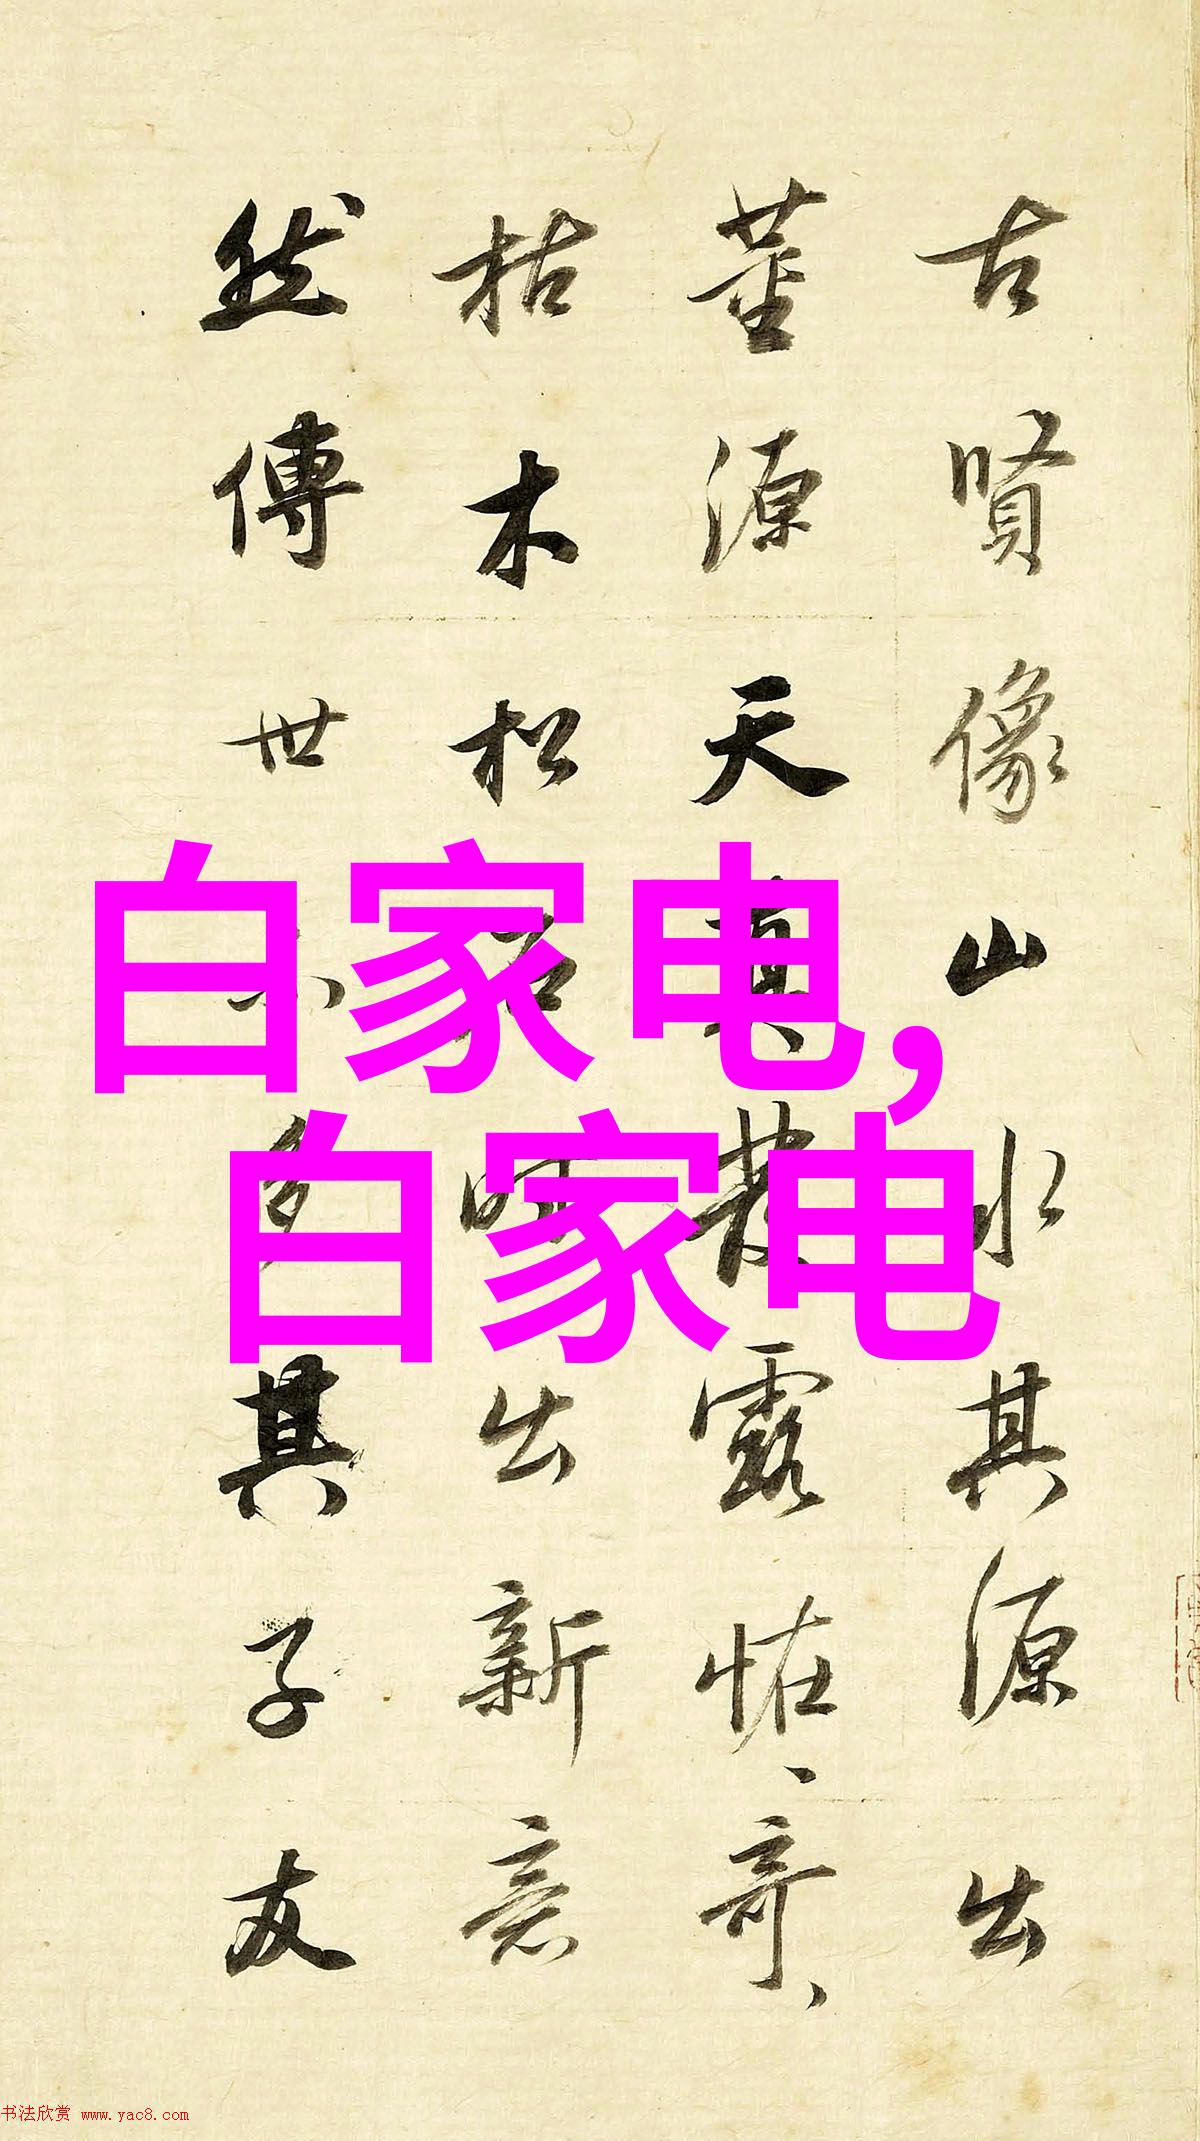 古賢像山水其源出
董源天真發露恠、奇、
枯木松石時出新意
然傳世不多其子友
白家电,
白家电
书法欣赏 www.yac8.com